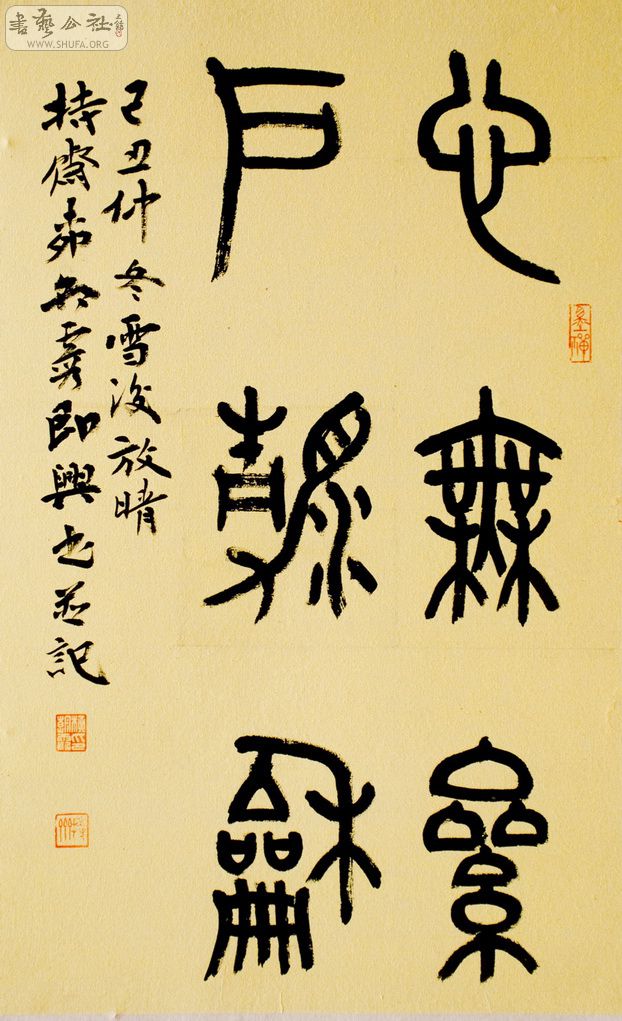 心無絫
戶龢
己丑仲冬雪後放晴
持齋即興書並記
書藝公社
WWW.SHUFA.ORG